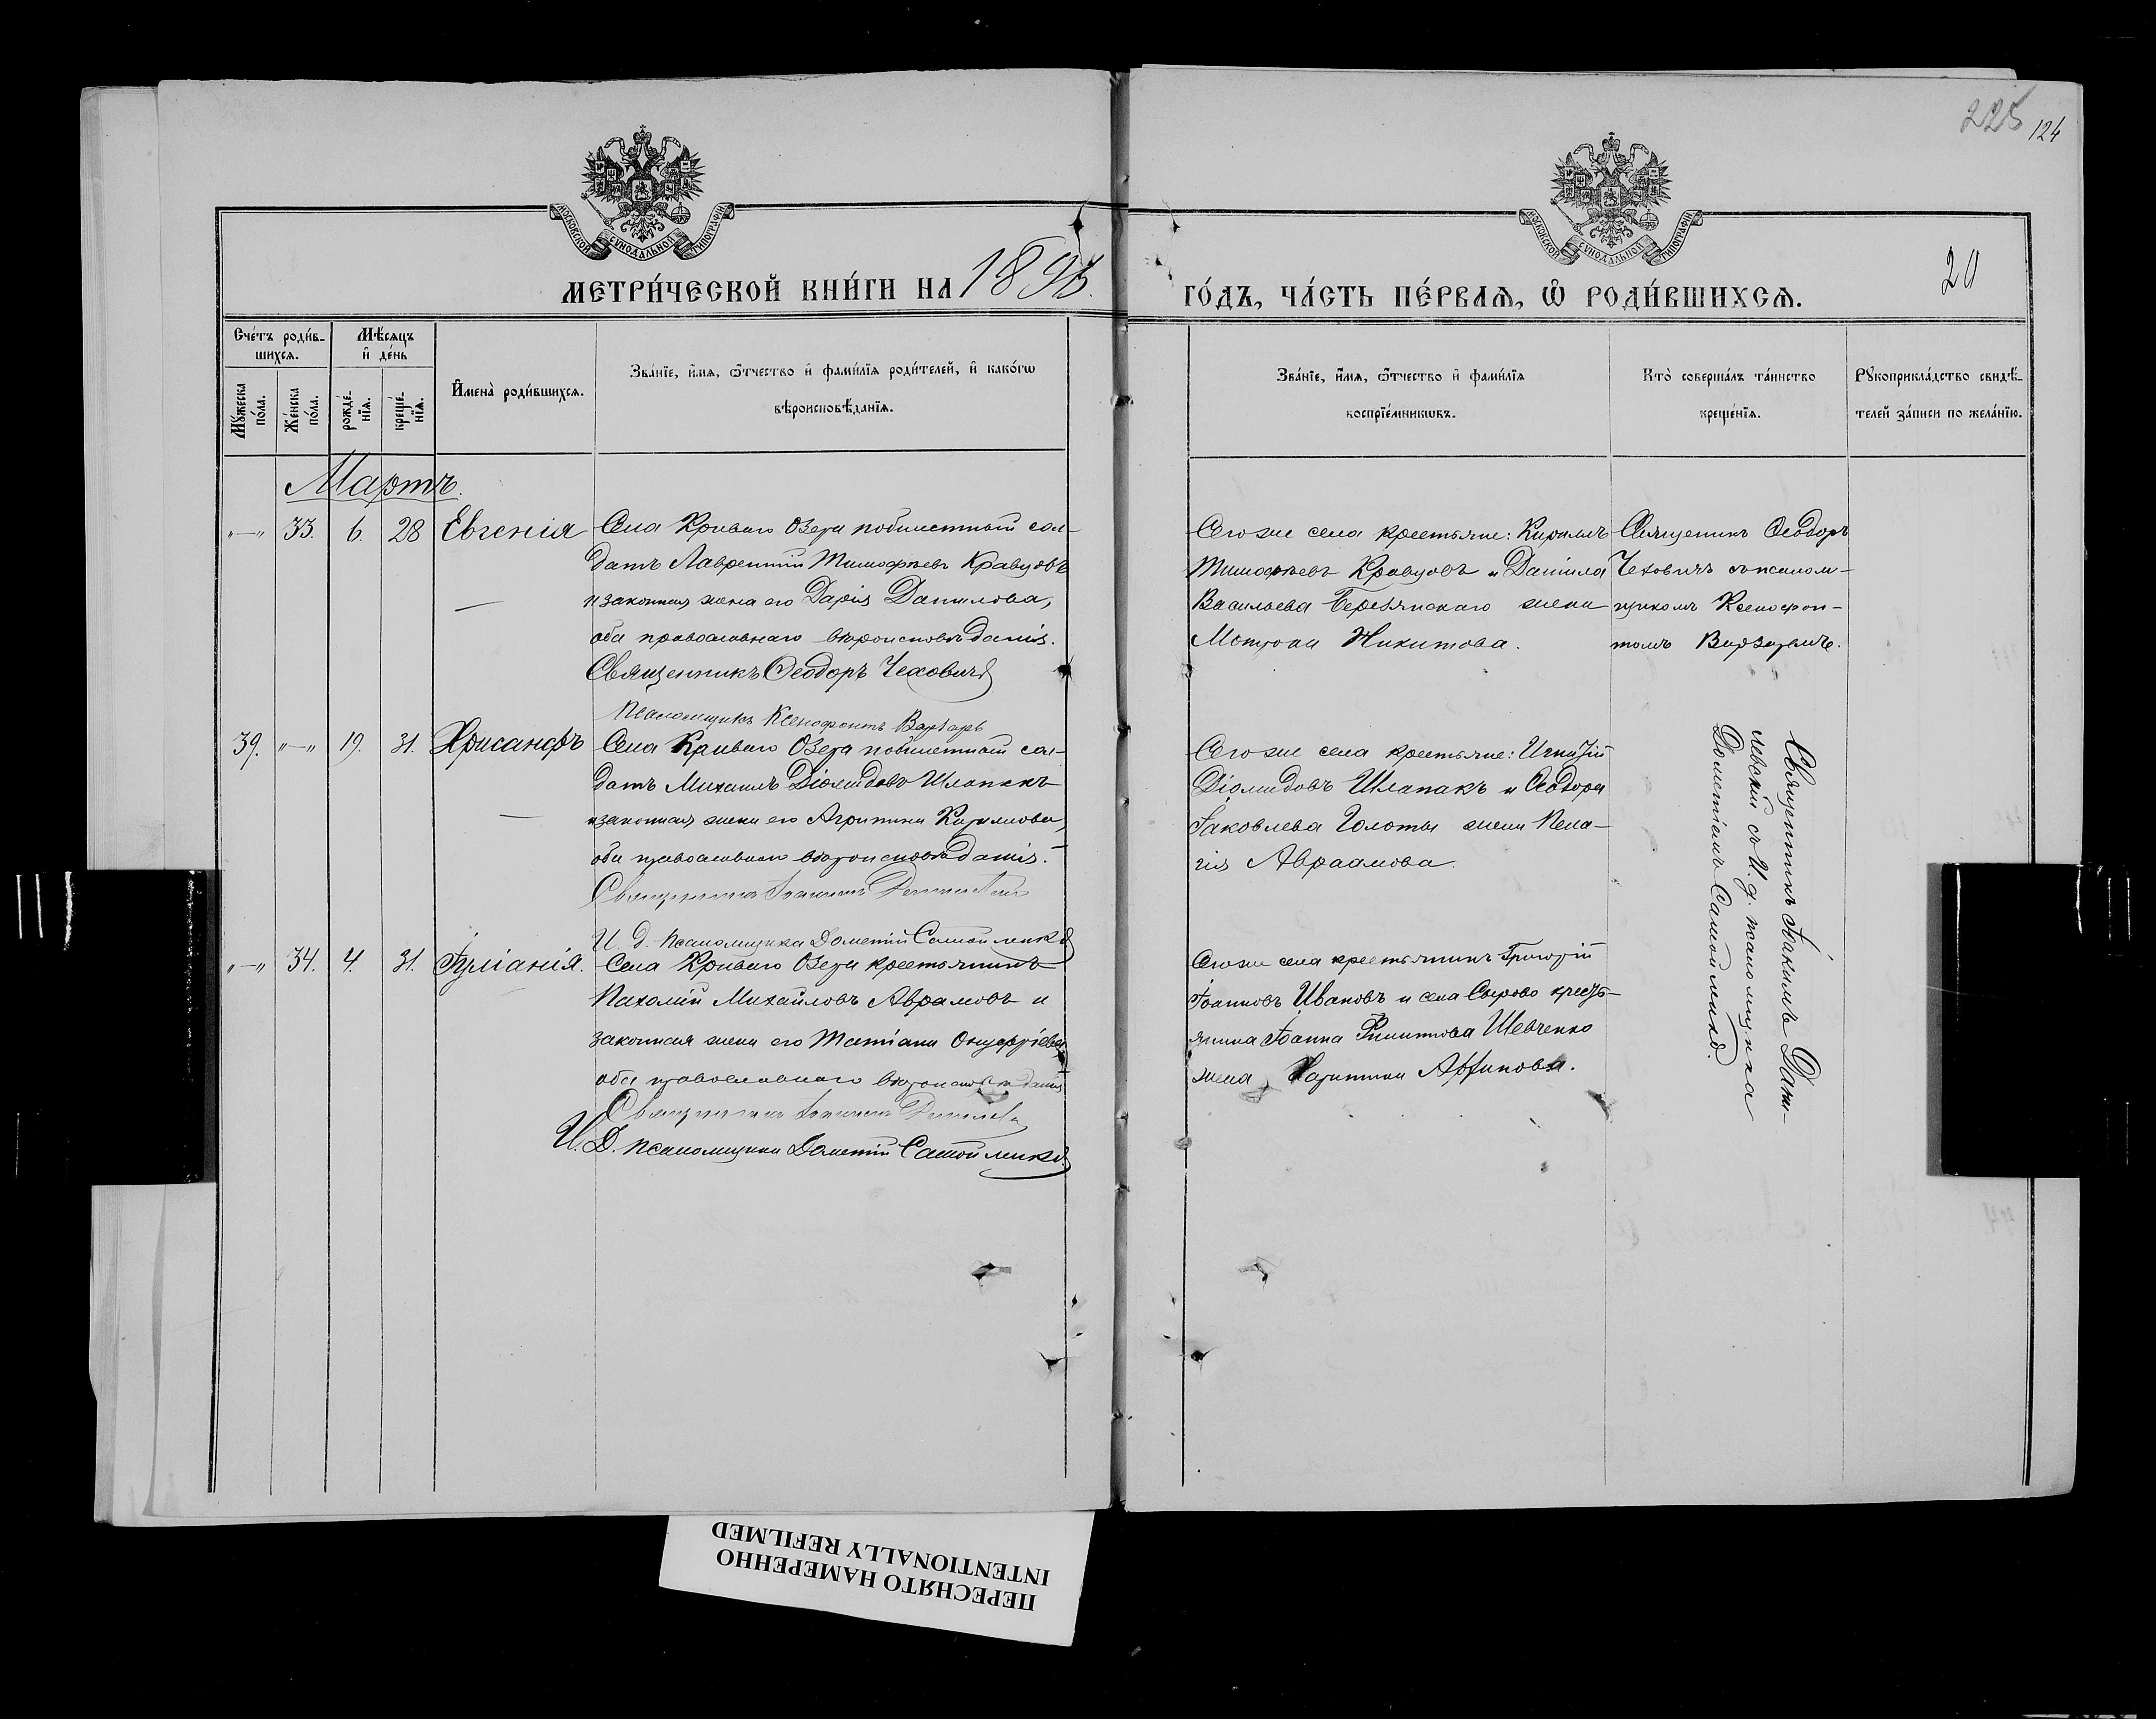 225 124
МОСКОВСКОЙ СѴНОДАЛЬНОЙ ТИПОГРАФІИ
МОСКОВСКОЙ СѴНОДАЛЬНОЙ ТИПОГРАФІИ
МЕТРИ́ЧЕСКОЙ КНИ́ГИ НА 189
ГО́ДЪ, ЧА́СТЬ ПЕ́РВАѦ, Ѿ РОДИ́ВШИХСѦ.
20
Сче́тъ роди́в-
шихсѧ.
Мѣ́сѧцъ
и҆ де́нь
Мꙋ́жеска по́ла.
Же́нска по́ла.
рожде́-
нїѧ.
креще́-
нїѧ.
И҆мена̀ роди́вшихсѧ.
Зва́нїе, и҆́мѧ, ѻ҆́тчество и҆ фами́лїѧ роди́телей, и҆ како́гѡ
вѣроисповѣ́данїѧ.
Зва́нїе, и҆́мѧ, ѻ҆́тчество и҆ фами́лїѧ
воспрїе́мникѡвъ.
Кто̀ соверша́лъ та́инство
креще́нїѧ.
Рꙋкоприкла́дство свидѣ́-
телей за́писи по жела́нїю.
Мартъ.
„—„ 33. 6. 28 Евгенія
Села Криваго Озера побилетный сол-
датъ Лаврентій Тимофѣевъ Кравцовъ
и законная жена его Дарія Данилова,
оба православнаго вѣроисповѣданія.
Священникъ Ѳеодоръ Чеховичъ
Псаломщикъ Ксенофонтъ
Того же села крестьяне: Кириллъ
Тимофѣевъ Кравцовъ и Даніила
Васильева жена
Никитова.
Священникъ Ѳеодоръ
Чеховичъ съ псалом-
щикомъ Ксенофон-
томъ
39. „—„ 19. 31. Хрисанфъ
Села Криваго Озера побилетный сол-
датъ Михаилъ Діомидовъ Шлапакъ
и законная жена его Агрипина Кириллова,
оба православнаго вѣроисповѣданія.
Священникъ
И. д. псаломщика Дометій Самойленко
Того же села крестьяне: Игнатій
Діомидовъ Шлапакъ и Ѳеодора
Іаковлева Голоты жена Пела-
гія Авраамова.
Священникъ Іакимъ Дани-
левскій съ И. д. псаломщика
Дометіемъ Самойленко.
„—„ 34. 4. 31. Іуліанія.
Села Криваго Озера крестьянинъ
Пахомій Михайловъ Аврамовъ и
законная жена его Татіана Онуфріева
оба православнаго вѣроисповѣданія
Священникъ
И. Д. псаломщика Дометій Самойленко
Того же села крестьянинъ Григорій
Іоанновъ Ивановъ и села Сырово кресть-
янина Іоанна Шевченко
жена
ПЕРЕСНЯТО НАМЕРЕННО
INTENTIONALLY REFILMED